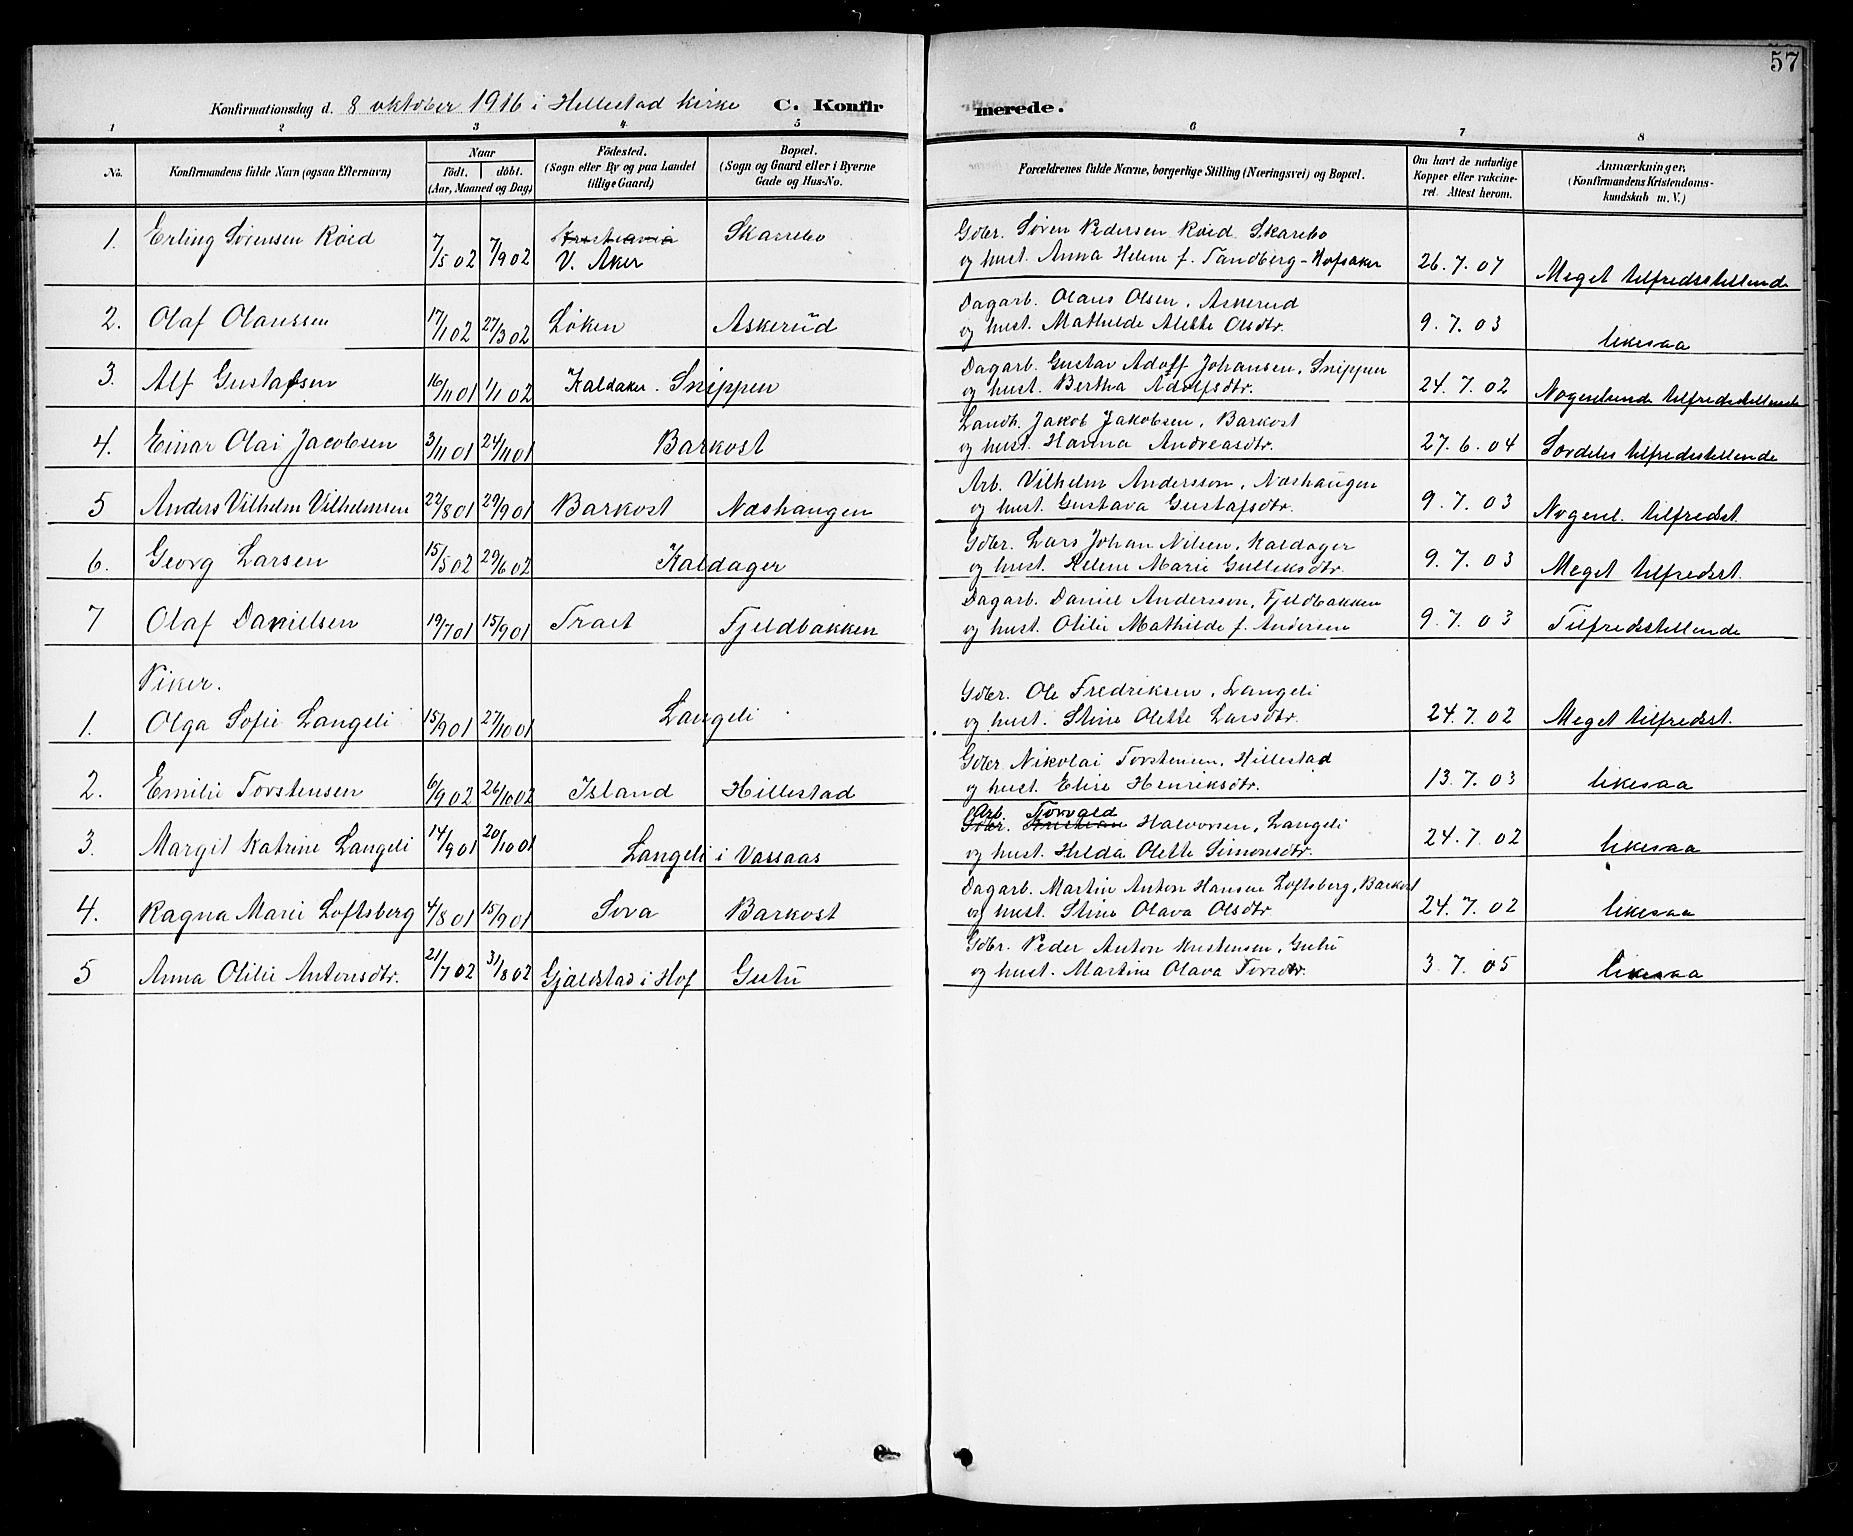 57
Konfirmationsdag d. 8 oktober 1916 i Hillestad Kirke C. Konfirmerede.
1 2 3 4 5 6 7 8
No. Konfirmandens fulde Navn (ogsaa Efternavn) Naar födt. döbt. (Aar, Maaned og Dag) Födested. (Sogn eller By og paa Landet tillige Gaard) Bopæl. (Sogn og Gaard eller i Byerne Gade og Hus-No. Forældrenes fulde Navne, borgerlige Stilling (Næringsvei) og Bopæl. Om havt de naturlige Kopper eller vakcineret. Attest herom. Anmærkninger, (Konfirmandens Kristendomskundskab m. V.)
1. Erling Sörensen Röed 7/5 02 7/9 02 Kristiania V. Aker Skarrebo Gdbr. Sören Pedersen Röed Skarebo
og hust. Anna Helene f. Tandberg-Hofsaker 26. 7. 07 Meget tilfredsstillende
2. Olaf Olaussen 17/1 02 27/3 02 Löken Askerud Dagarb. Olaus Olsen, Askerud
og hust. Mathilde Alette Olsdtr. 9. 7. 03 likesaa
3. Alf Gustafsen 16/11 01 1/1 02 Kaldaker. Snippen Dagarb. Gustav Adolf Johansen, Snippen
og hust. Bertha Adolfsdtr. 24. 7. 02 Nogenlunde tilfredsstillende
4. Einar Olai Jacobsen 3/11 01 24/11 01 Barkost Landh. Jakob Jakobsen, Barkost
og hust. Hanna Andreasdtr. 27. 6. 04 Særdeles tilfredsstillende
5 Anders Vilhelm Vilhelmsen 22/8 01 29/9 01 Barkost Næshaugen Arb. Vilhelm Andersson, Næshaugen
og hust. Gustava Gustafsdtr. 9. 7. 03 Nogenl. tilfredsst.
6. Georg Larsen 15/5 02 29/6 02 Kaldager Gdbr. Lars Johan Nilsen, Kaldager
og hust. Helene Marie Gulliksdtr. 9. 7. 03 Meget tilfredsst.
7 Olaf Danielsen 19/7 01 15/9 01 Traet Fjeldbakken Dagarb. Daniel Andersson, Fjeldbakken
og hust. Otilie Mathilde f. Andersen 9. 7. 03 Tilfredsstillende
Piker.
1. Olga Sofie Langeli 15/9 01 27/10 01 Langeli Gdbr. Ole Fredriksen, Langeli
og hust. Stine Olette Larsdtr. 24. 7. 02 Meget tilfredsst.
2. Emilie Torstensen 6/9 02 26/10 02 Island Hillestad Gdbr. Nikolai Torstensen, Hillestad
og hust. Elise Henriksdtr. 13. 7. 03 likesaa
3. Margit Katrine Langeli 14/9 01 20/10 01 Langeli i Vassaas Arb. Torvald
Gdbr. Kristian Halvorsen, Langeli
og hust. Hilda Olette Simonsdtr. 24. 7. 02 likesaa
4. Ragna Marie Loftsberg 4/8 01 15/9 01 Sova Barkost Dagarb. Martin Anton Hansen Loftsberg, Barkost
og hust. Stine Olava Olsdtr. 24. 7. 02 likesaa
5 Anna Otilie Antonsdtr. 21/7 02 31/8 02 Gjaldstad i Hof Gutu Gdbr. Peder Anton Kristensen, Gutu
og hust. Martine Olava Torsdtr. 3. 7. 05 likesaa